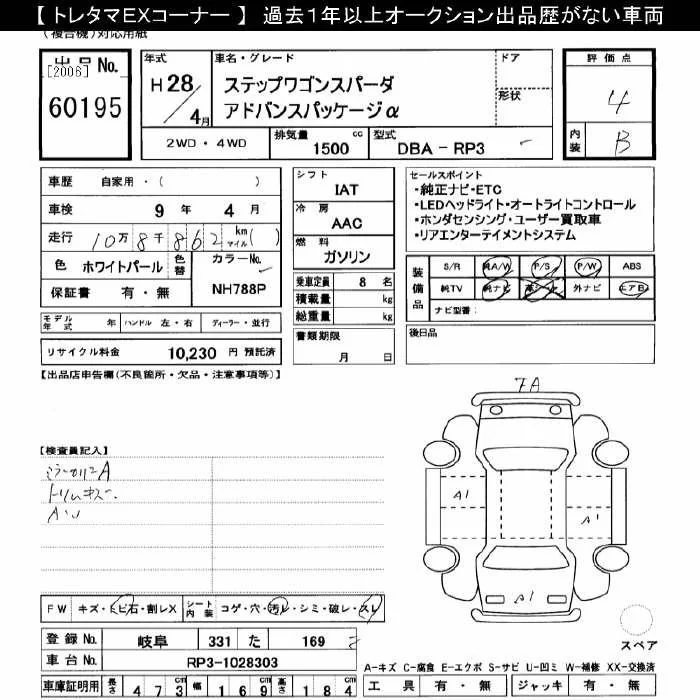 【 トレタマEXコーナー 】 過去1年以上オークション出品歴がない車両
(複合機)対応用紙
出品No.
[2006]
60195
年式
H28/4月
車名・グレード
ステップワゴンスパーダ
アドバンスパッケージα
ドア
形状
2WD ・ 4WD
排気量
1500 cc
型式
DBA - RP3
評価点
4
内装
B
車歴 自家用・( )
車検 9 年 4 月
走行 10万8千862 km マイル( )
色 ホワイトパール
色替
カラーNo.
NH788P
保証書 有・無
シフト
IAT
冷房
AAC
燃料
ガソリン
乗車定員 8 名
積載量 kg
総重量 kg
書類期限
月 日
セールスポイント
・純正ナビ・ETC
・LEDヘッドライト・オートライトコントロール
・ホンダセンシング・ユーザー買取車
・リアエンターテイメントシステム
装備品
S/R 純A/W P/S P/W ABS
純TV 純ナビ 革シート 外ナビ エアB
ナビ型番:
後日品
モデル年式 年 ハンドル 左・右 ディーラー・並行
リサイクル料金 10,230 円 預託済
【出品店申告欄(不良箇所・欠品・注意事項等)】
【検査員記入】
トリムキズ
7A
A1
A1
A1
FW キズ・ヒビ石・割レX
シート内装 コゲ・穴・汚レ・シミ・破レ・スレ
登録No. 岐阜 331 た 169
車台No. RP3-1028303
スペア
A-キズ C-腐食 E-エクボ S-サビ U-凹ミ W-補修 XX-交換済
車庫証明用 長さ 473 cm 幅 169 cm 高さ 184 cm
工具 有・無 ジャッキ 有・無